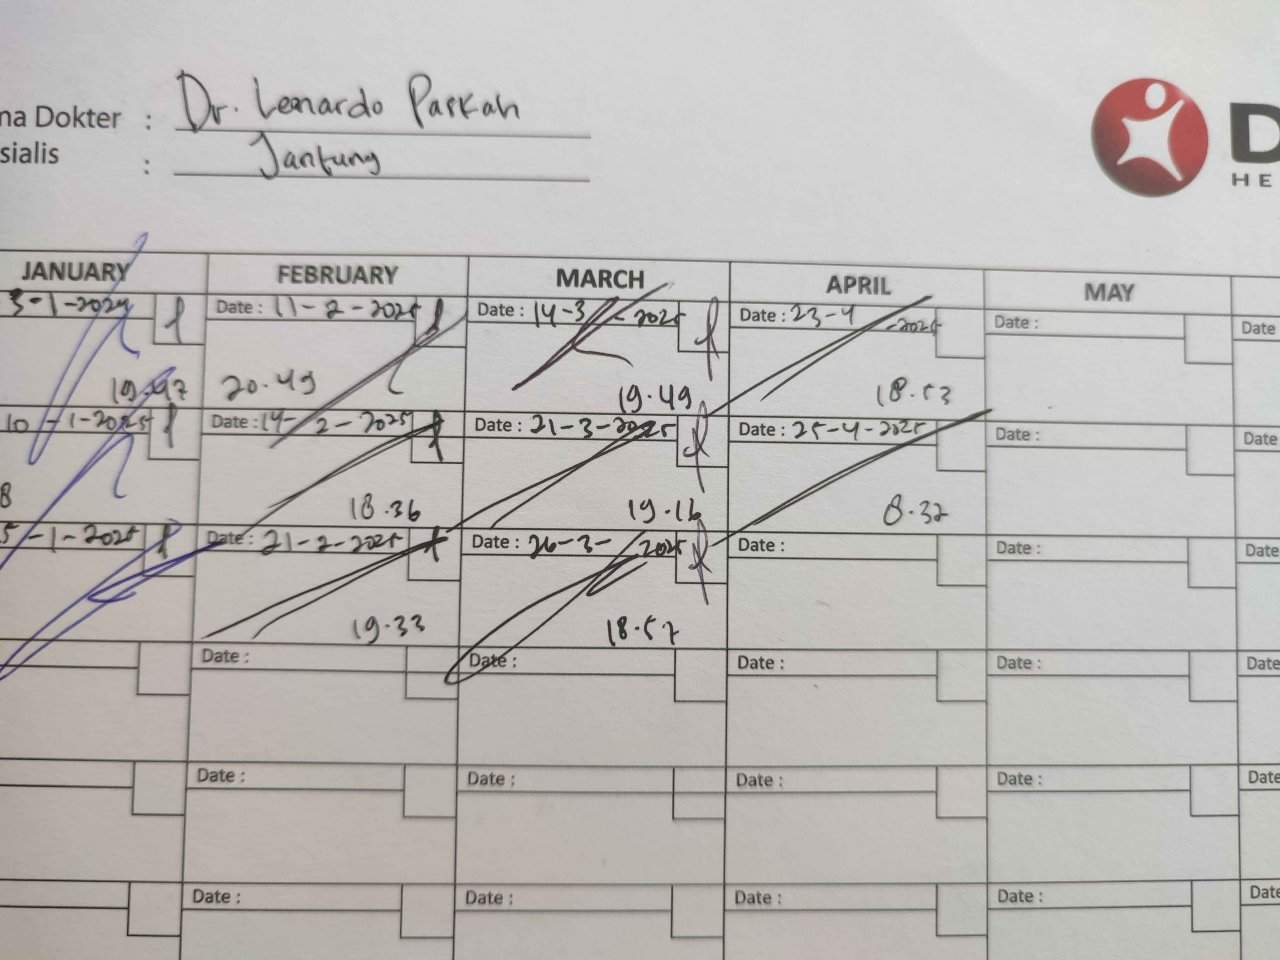 ma Dokter : Dr. Leonardo Paskah
sialis : Jantung
D
HE
JANUARY FEBRUARY MARCH APRIL MAY
3-1-2024 Date : 11-2-2025 Date : 14-3-2025 Date : 23-4-2025 Date : Date
19.47 20.49 19.49 18.53
10-1-2025 Date : 14-2-2025 Date : 21-3-2025 Date : 25-4-2025 Date : Date
8 18.36 19.16 8.32
5-1-2025 Date : 21-2-2025 Date : 26-3-2025 Date : Date : Date
19.33 18.57
Date : Date : Date : Date : Date
Date : Date : Date : Date : Date
Date : Date : Date : Date : Date